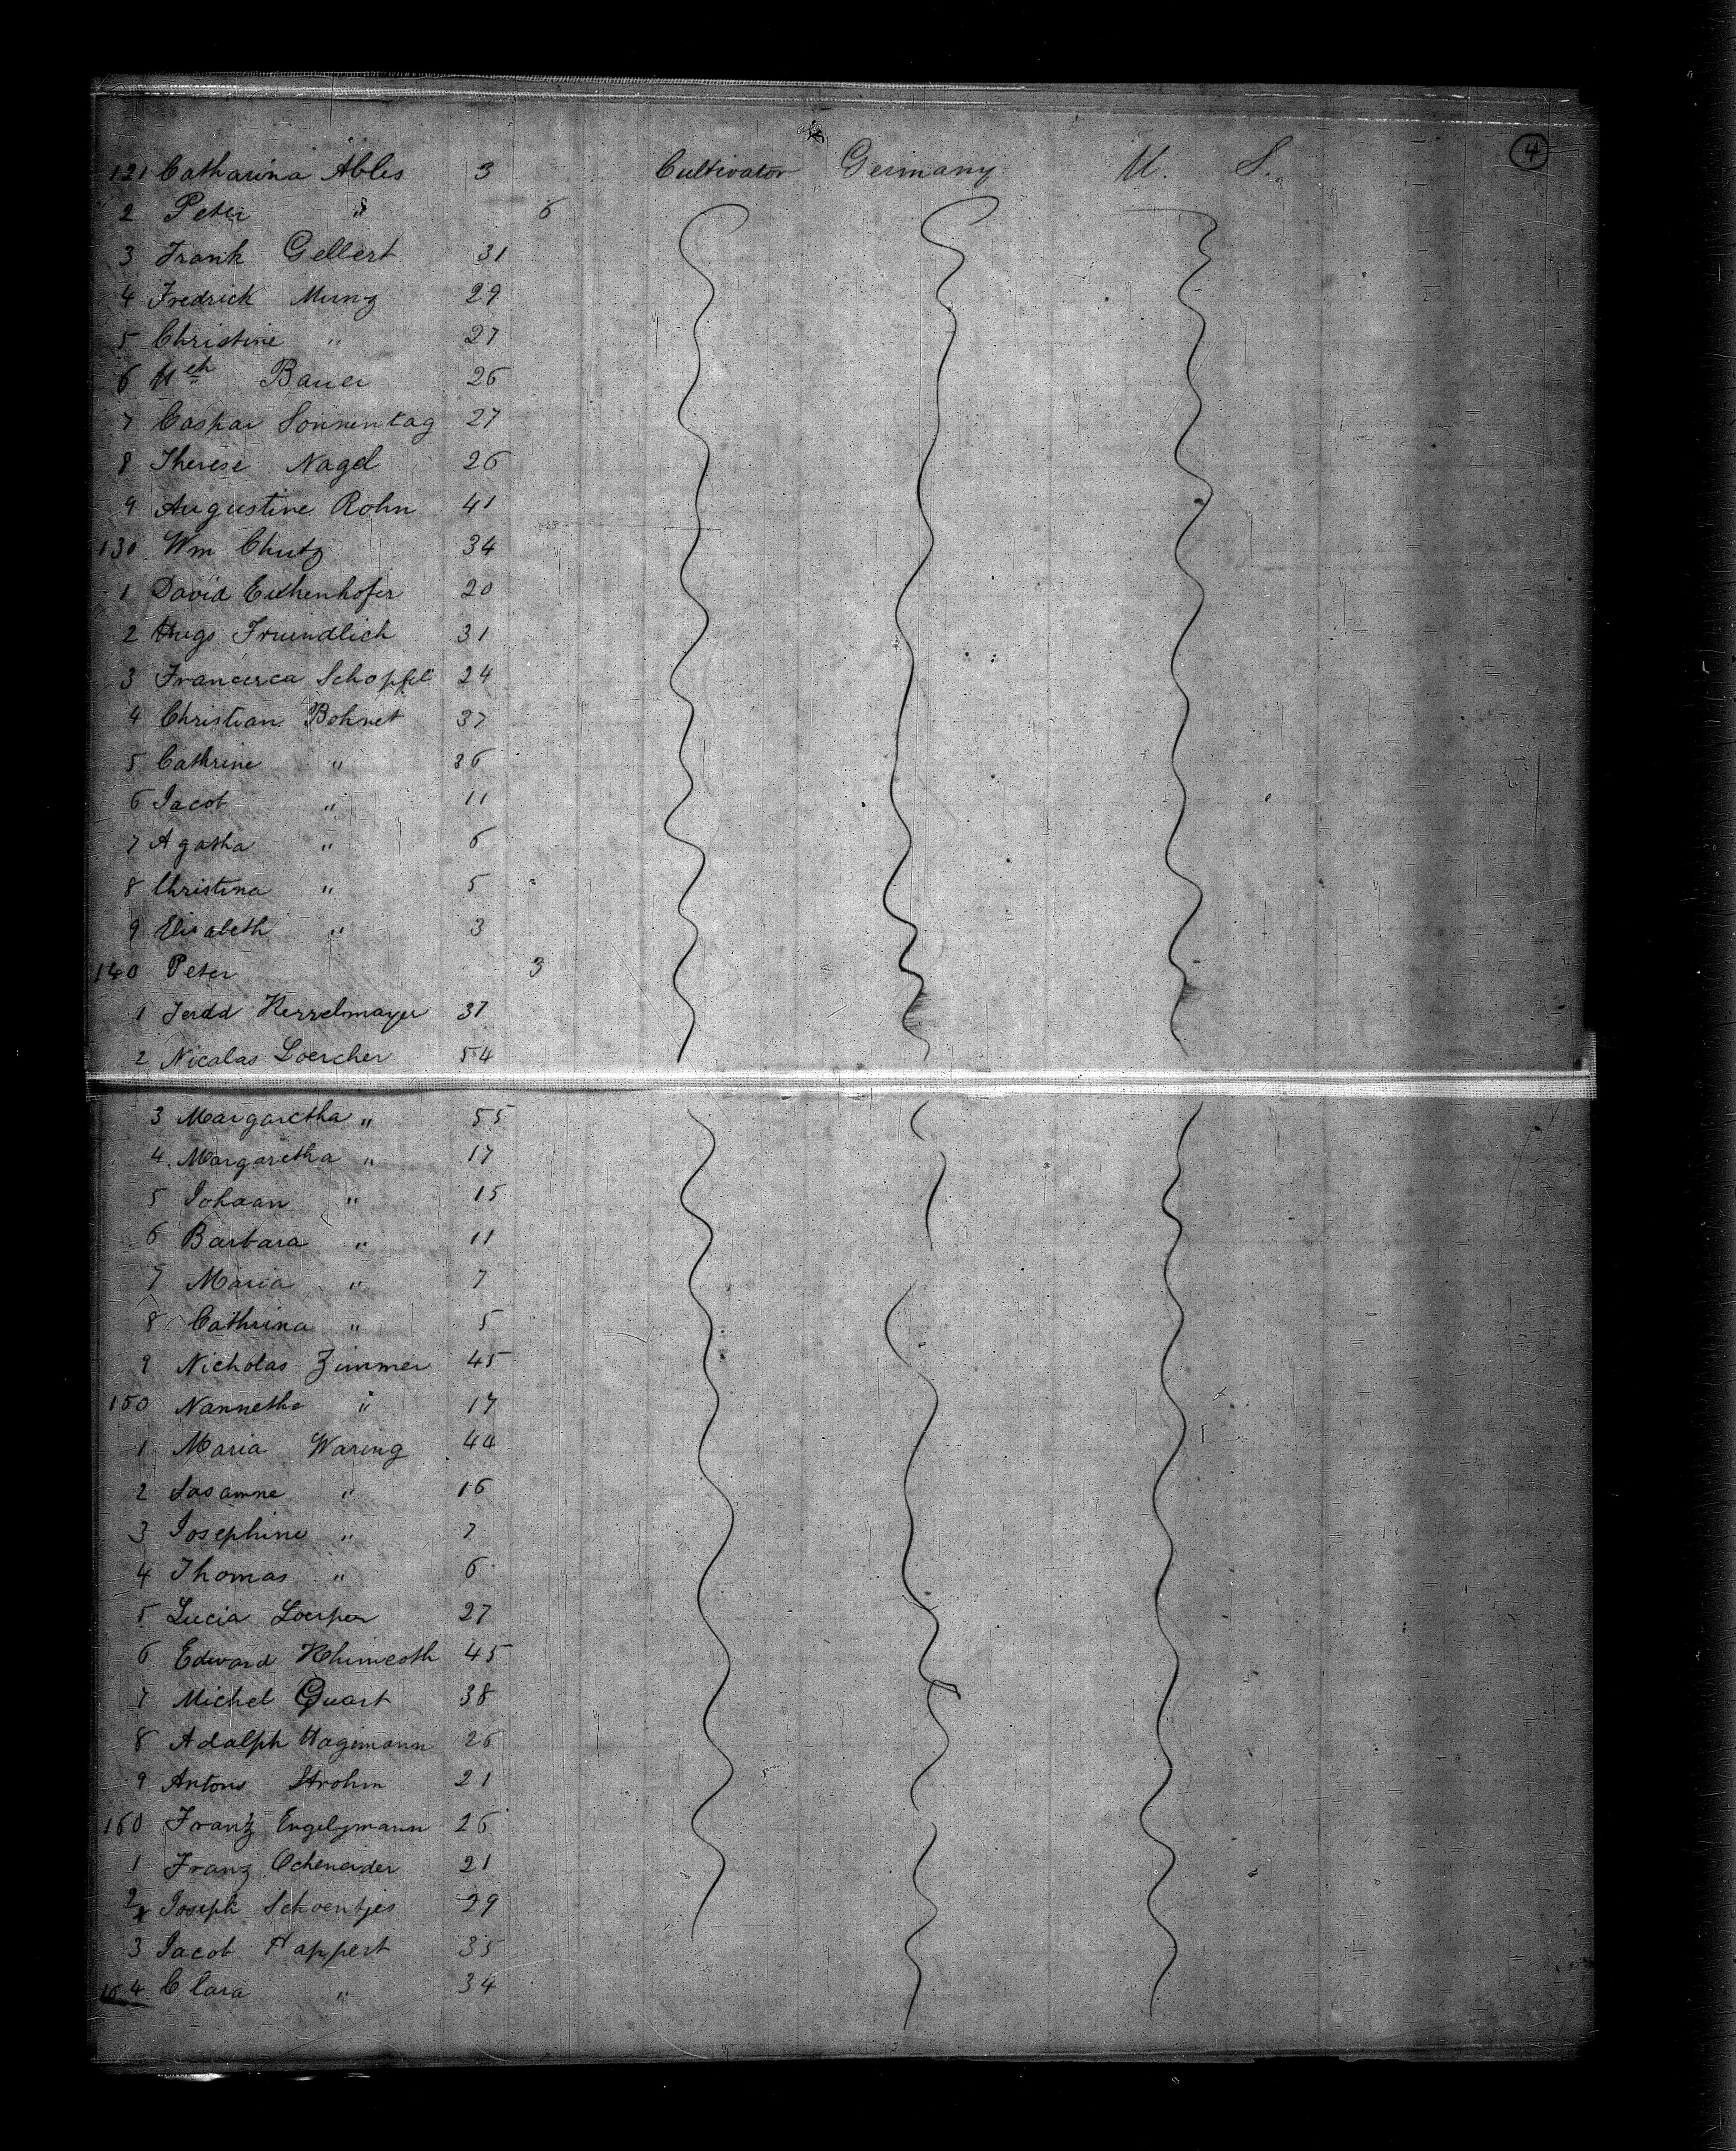 4
121 Catharina Ables 3 Cultivator Germany U. S.
2 Peter " 6
3 Frank Gellert 31
4 Fredrick Munz 29
5 Christine " 27
6 Bauer 26
7 Caspar Sonnentag 27
8 Therese Nagel 26
9 Augustine Rohn 41
130 Wm Chutz 34
1 David 20
2 Hugo Fruindlich 31
3 Francisca 24
4 Christian Bohnet 37
5 Cathrine " 36
6 Jacob " 11
7 Agatha " 6
8 Christina " 5
9 Elisabeth " 3
140 Peter 3
1 Ferdd 37
2 Nicolas Loercher 54
3 Margaretha " 55
4 Margaretha " 17
5 Johaan " 15
6 Barbara " 11
7 Maria " 7
8 Cathrina " 5
9 Nicholas Zimmer 45
150 Nannetha " 17
1 Maria Waring 44
2 Sasanne " 16
3 Josephine " 7
4 Thomas " 6
5 Lucia Loerper 27
6 Edward 45
7 Michel Quart 38
8 Adalph Hagemann 26
9 Antons Strohm 21
160 Franz Engelymann 26
1 Franz 21
2 Joseph Schoentjes 29
3 Jacob Happert 35
164 Clara " 34